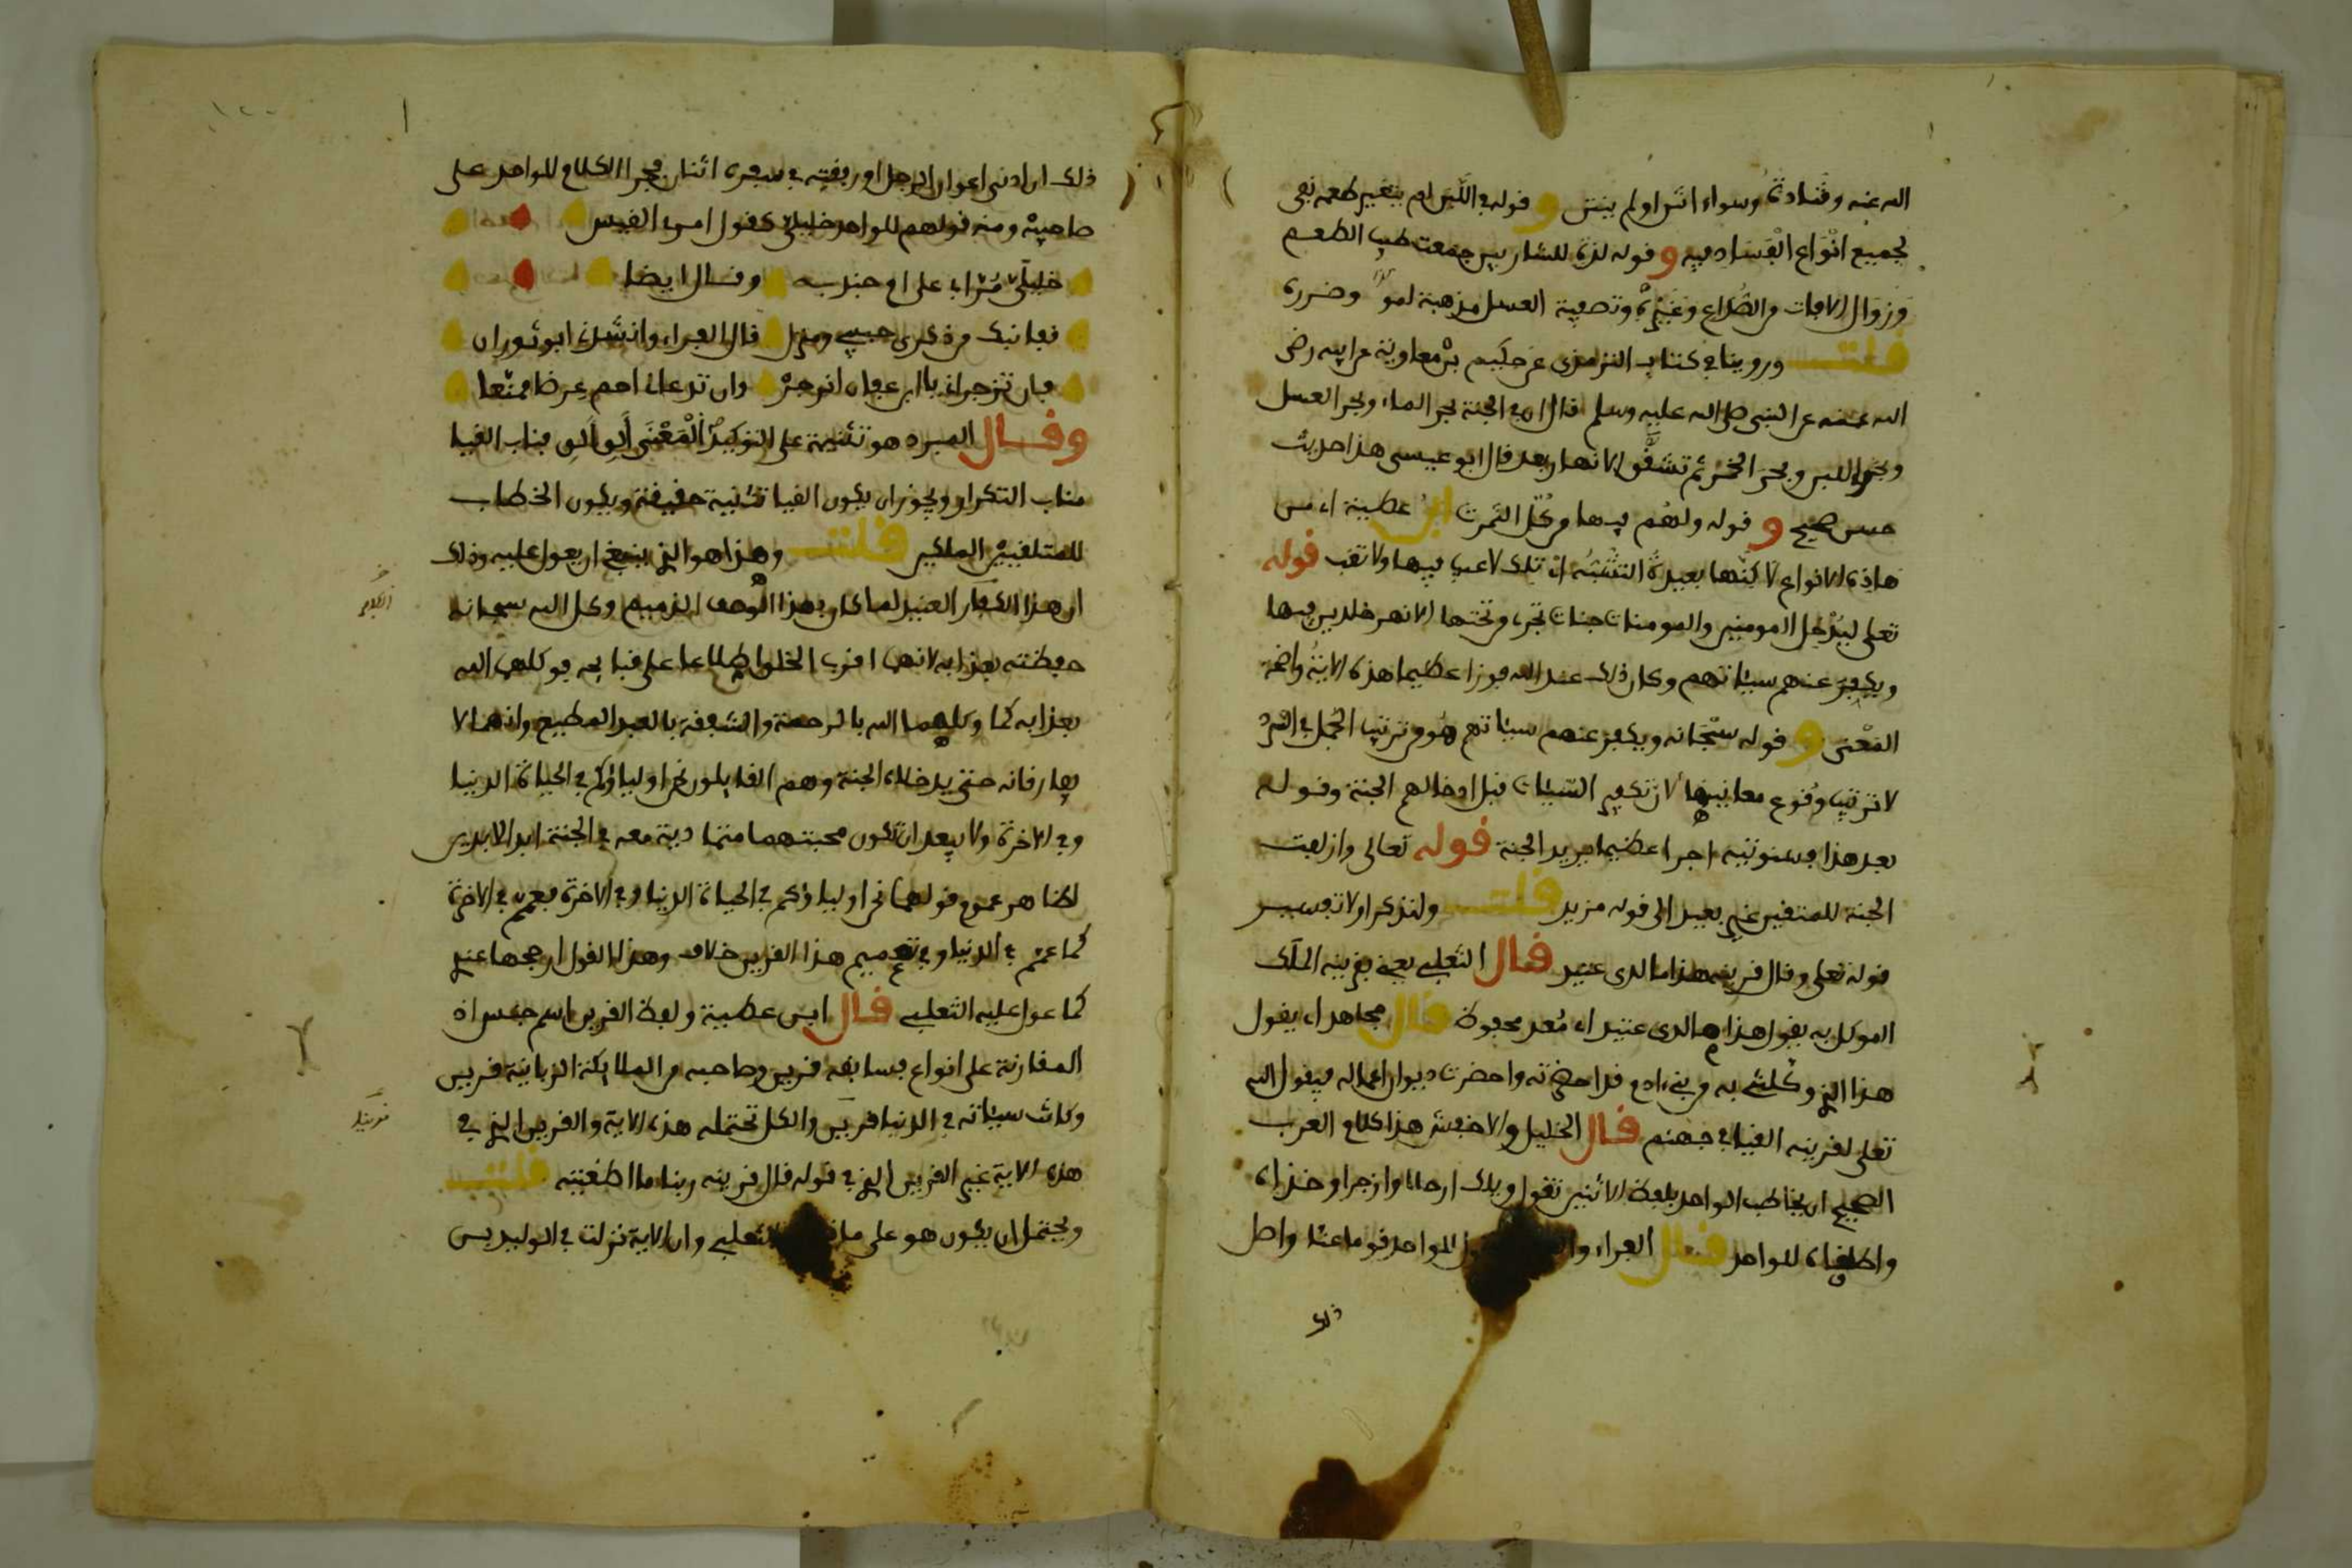 الله عنه وقتادة وسواء انتن اولم ينتن و قوله في اللبن لم يتغير طعمه نفي
لجميع انواع الفساد فيه و قوله لذة للشاربين جمعت طيب الطعم
وزوال الافات من الصداع وغيره وتصفية العسل مذهبة لمومه وضرره
قلت وروينا في كتاب الترمذي عن حكيم بن معاوية عن ابيه رضي
الله عنه عن النبي صلى الله عليه وسلم قال ان في الجنة بحر الماء وبحر العسل
وبحر اللبن وبحر الخمر ثم تشقق الانهار بعد قال ابو عيسى هذا حديث
حسن صحيح و قوله ولهم فيها من كل الثمرات ابن عطية اي من
هاذه الانواع لاكنها بعيدة الشبه اذ تلك لا عيب فيها ولا تعب قوله
تعلى ليدخل المومنين والمومنات جنات تجري من تحتها الانهر خلدين فيها
ويكفر عنهم سيئاتهم وكان ذلك عند الله فوزا عظيما هذه الاية واضحة
المعنى و قوله سبحانه ويكفر عنهم سيئاتهم هو من ترتيب الجمل في السرد
لا ترتيب وقوع معانيها لان تكفير السيئات قبل ادخالهم الجنة وقوله
بعد هذا فسنوتيه اجرا عظيما يريد الجنة قوله تعالى وازلفت
الجنة للمتقين غير بعيد الى قوله مزيد قلت ولنذكر اولا تفسير
قوله تعلى وقال قرينه هذا ما لدي عتيد قال الثعلبي يعني بقرينه الملك
الموكل به يقول هذا ما لدي عتيد اي معد محفوظ قال مجاهد اي يقول
هذا الذي وكلتني به من بني ادم قد احضرته واحضرت ديوان اعماله فيقول الله
تعلى لقرينه القيا في جهنم قال الخليل والاخفش هذا كلام العرب
الصحيح ان يخاطب الواحد بلفظ الاثنين تقول ويلك ارحلا وازجرا وخذاه
واطلقاه للواحد قال الفراء للواحد قوما عنا واصل
ذلك
ذلك ان ادنى اعوان الرجل او رفقته في سفره اثنان فجرا الكلام للواحد على
صاحبيه ومنه قولهم للواحد خليلي كقول امرئ القيس
خليلي مرا بي على ام جندب وقال ايضا
قفا نبك من ذكرى حبيب ومنزل قال الفراء وانشدني ابو ثوران
فان تزجراني يا ابن عفان انزجر وان تدعاني احم عرضا ممنعا
وقال المبرد هو تثنية على التوكيد المعنى الق الق فناب القيا
مناب التكرار ويجوز ان يكون القيا تثنية حقيقة ويكون الخطاب
للمتلقيين الملكين قلت وهذا هو الذي ينبغي ان يعول عليه وذلك
ان هذا الكفار العنيد لما كان بهذا الوصف الذميم وكل الله سبحانه
حفظته بعذابه لانهما اقرب الخلق اطلاعا على قبايحه فوكلهما الله
بعذابه كما وكلهما الله بالرحمة والشفقة بالعبد المطيع وانهما لا
يفارقانه حتى يدخلاه الجنة وهم القايلون نحن اولياؤكم في الحياة الدنيا
وفي الاخرة ولا يبعد ان تكون محبتهما متمادية معه في الجنة ابد الابدين
لظاهر عموم قولهما نحن اولياؤكم في الحياة الدنيا وفي الاخرة فعمم في الاخرة
كما عمم في الدنيا وفي تعميم هذا القرين خلاف وهذا القول ارجحها عندي
كما عول عليه الثعلبي قال ابن عطية ولفظ القرين اسم جنس اذ
المقارنة على انواع فسايقه قرين وصاحبه من الملايكة الزبانية قرين
وكاتب سيئاته في الدنيا قرين والكل تحتمله هذه الاية والقرين الذي في
هذه الاية غير القرين الذي في قوله قال قرينه ربنا ما اطغيته قلت
ويحتمل ان يكون هو على الثعلبي وان الاية نزلت في الوليد بن